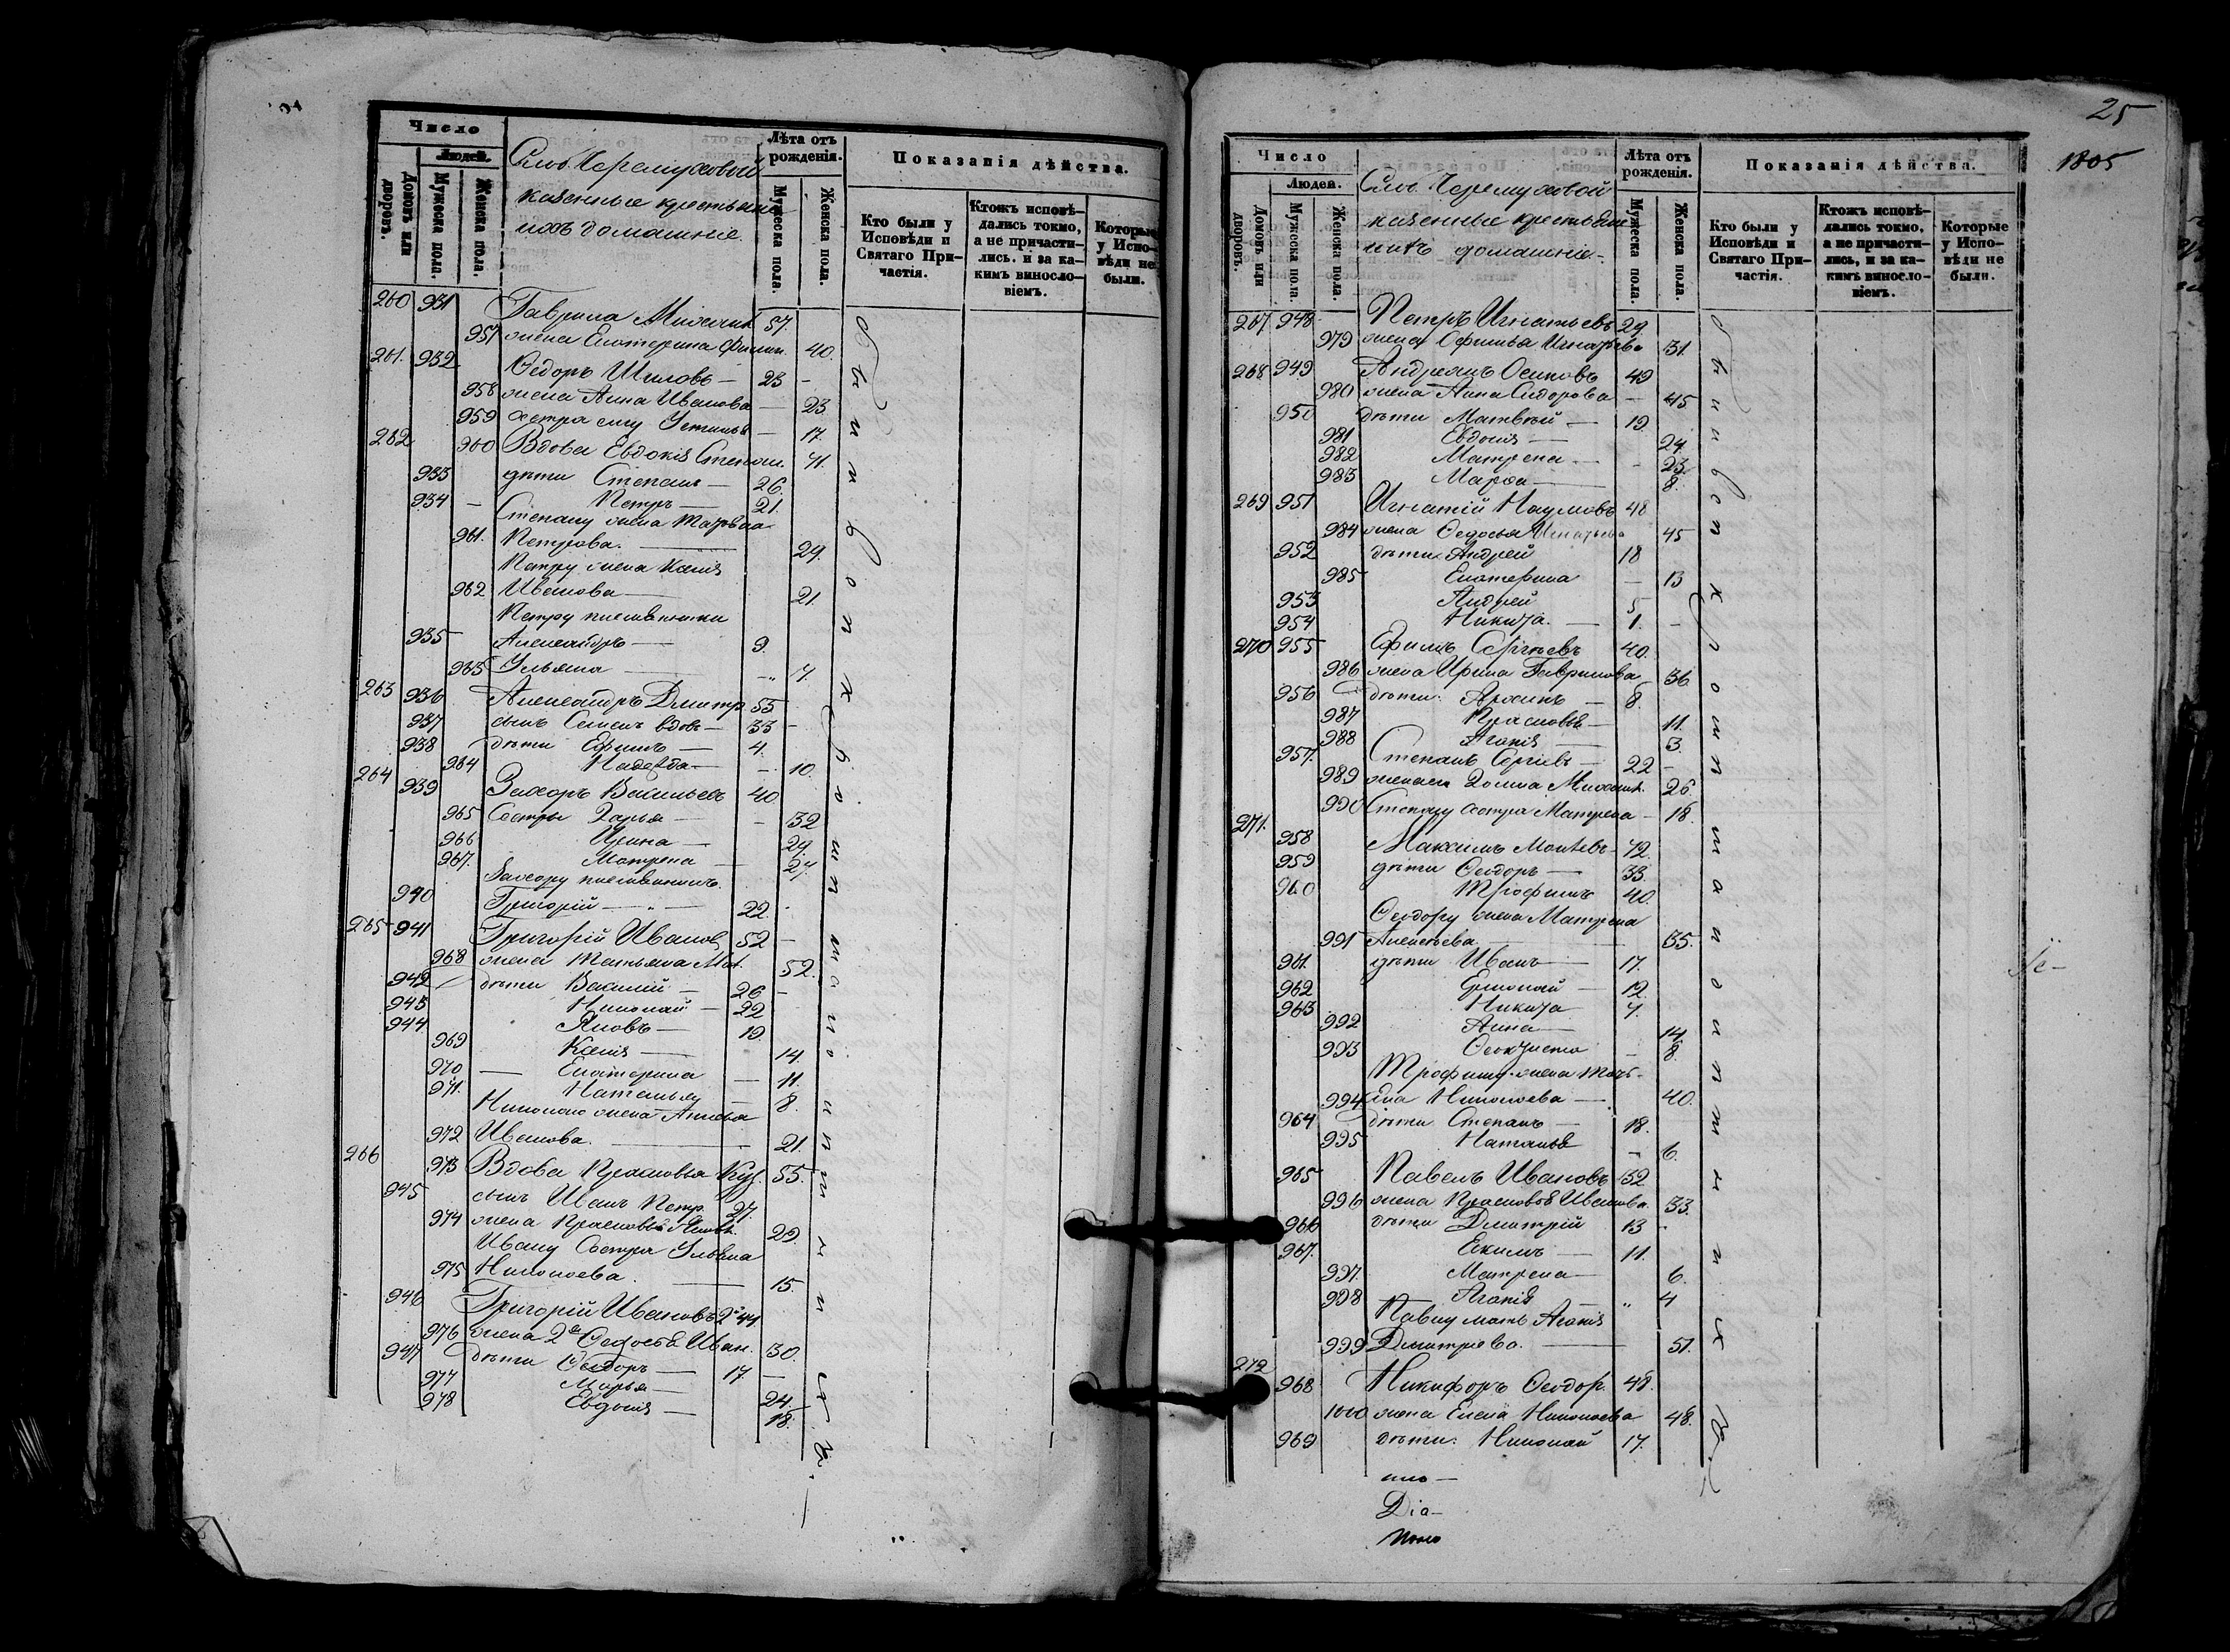 Число
Людей.
Домовъ или дворовъ.
Мужеска пола.
Женска пола.
Слоб. Черемуховой
казенные крестьяне
ихъ домашніе.
Лѣта отъ рожденія.
Мужеска пола.
Женска пола.
Показанія дѣйства.
Кто были у Исповѣди и Святаго Причастія.
Ктожъ исповѣдались токмо, а не причастились. и за какимъ винословіемъ.
Которые у Исповѣди не были.
260 931 Гаврила Михаил. 57.
957 жена Екатерина Филип. 40.
261. 932 Ѳедоръ Шиловъ — 23 -
958 жена Анна Иванова — 23
959 сестра ему Устинья — 17.
262 960 Вдова Евдокія Степан. 41.
933 дѣти Степанъ — 26.
934 — Петръ — 21.
Степану жена
961. Петрова. — 29.
Петру жена Ксенія
962 Иванова — 21.
Петру племянники
935 Александръ — 9.
963 Ульяна — 7.
263 936 Александръ Дмитр. 55
937 сынъ Семенъ вдовъ — 33 -
938 дѣти Ефимъ — 4.
964 Надежда — 10.
264 939 Захаръ Васильевъ 40
965 Сестры Дарья — 32
966 Ирина — 29.
967. Матрена — 27.
Захару племянникъ
940 Григорій — 22.
265 941 Григорій Иванов 52 -
968 жена Татьяна Мат. 52.
942 дѣти Василій — 26 -
943 Николай — 22
944 Яковъ — 19.
969 Ксенія — 14.
970 — Екатерина — 11.
971. Наталья — 8.
Николаю жена
972 Иванова. — 21.
266 973 Вдова Прасковья Куз. 55.
945 сынъ Иванъ Петр. 27.
974 жена Прасковья 29.
Ивану Сестра Ульяна
975 Николаева. — 15.
946 Григорій Ивановъ 2й 44.
976 жена 2я Ѳедосья Иван. 30.
947 дѣти Ѳедоръ — 17. —
977 Марья — 24.
978 Евдокія — 18.
были в оп хъ
25
1805
Число
Людей.
Домовъ или дворовъ.
Мужеска пола.
Женска пола.
Слоб. Черемуховой
казенные крестьяне
ихъ домашніе.
Лѣта отъ рожденія.
Мужеска пола.
Женска пола.
Показанія дѣйства.
Кто были у Исповѣди и Святаго Причастія.
Ктожъ исповѣдались токмо, а не причастились, и за какимъ винословіемъ.
Которые у Исповѣди не были.
267 948 Петръ Игнатьевъ 29.
979 жена Игнатьева 31.
268 949 Андреянъ Осиповъ 49
980 жена Анна Сидорова — 45
950 дѣти Матвѣй — 19
981 Евдокія — 24.
982 Матрена — 23.
983 Марѳа — 8.
269 951 Игнатій Наумовъ 48
984 жена Ѳедосья Игнатьева 45
952 дѣти Андрей 18
985 Екатерина — 13
953 Андрей 5
954 Никита. — 1. -
270 955 Ефимъ Сергѣевъ 40.
986 жена Ирина Гаврилова 36.
956 дѣти. Архипъ — 8.
987 Прасковья — 11.
988 Агапія — 3.
957. Степанъ Сергѣевъ — 22 -
989 Домна Михаил. 26.
990 Степану сестра Матрена — 18.
271. 958 Максимъ 72.
959 дѣти Ѳедоръ — 33.
960 Трофимъ 40.
Ѳеодору жена Матрена
991 Алексѣева — 35.
961. дѣти Иванъ — 17.
962 Ермолай — 12.
963 Никита 7.
992 Анна — 14.
993 Ѳеоктиста — 8.
Трофиму жена
994 Николаева — 40.
964 дѣти Степанъ — 18.
995 Наталья — 6.
965 Павелъ Ивановъ 32
996 жена Прасковья Иванова 33.
966 дѣти Дмитрій 13 -
967. Екимъ — 11.
997. Матрена — 6.
998 Агапія — 4
Павлу мать Агапія
999 Дмитріева. — 51.
272 968 Никифоръ Ѳеодор. 48.
1000 жена Елена Николаева 48.
969 дѣти. Николай 17.
Діа-